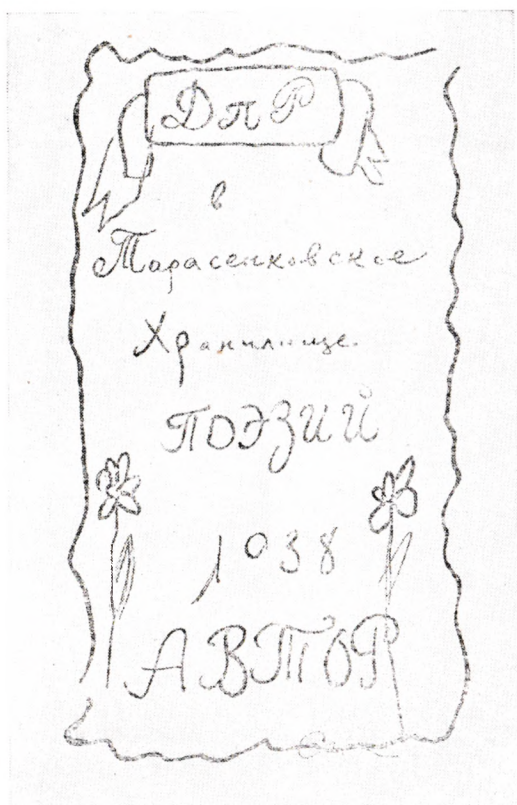 ДПР
в
Тарасенковское
Хранилище.
ПОЭЗИЙ
1938
АВТОР